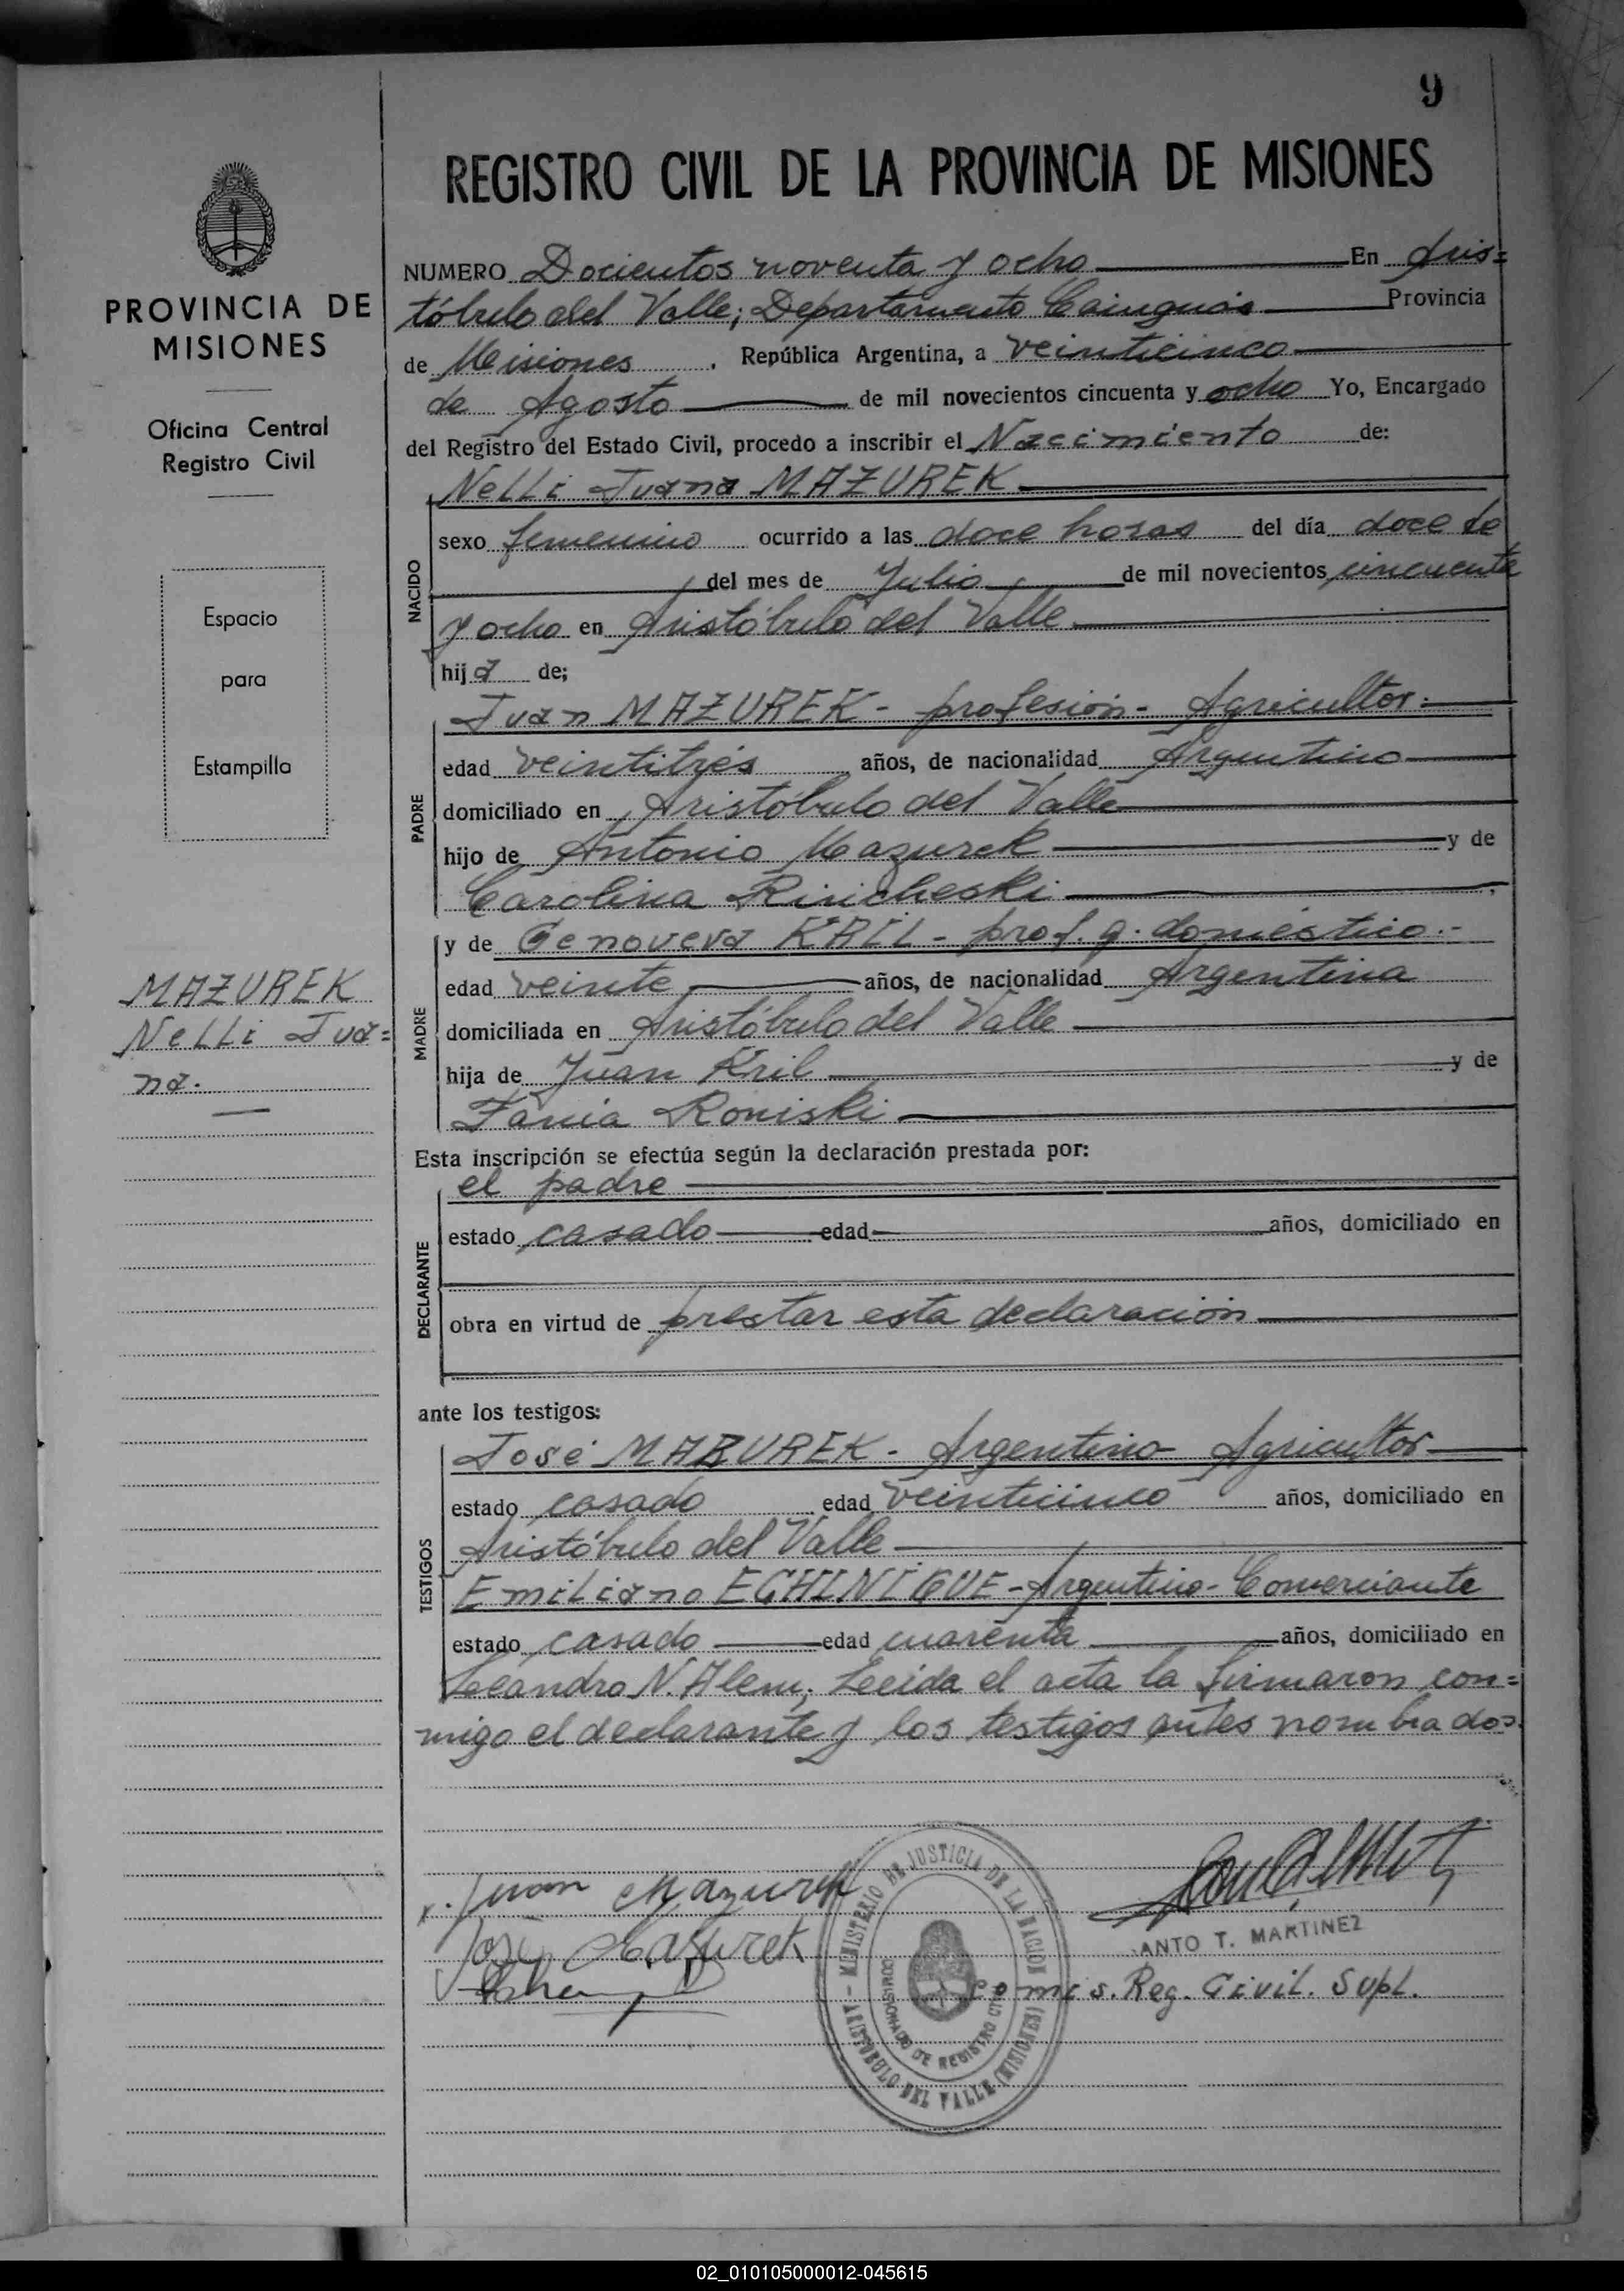 9
REGISTRO CIVIL DE LA PROVINCIA DE MISIONES
PROVINCIA DE
MISIONES
Oficina Central
Registro Civil
Espacio
para
Estampilla
MAZUREK
Nelli Jua=
na.
NUMERO Docientos noventa y ocho En Aris=
tóbulo del Valle; Departamento Cainguás Provincia
de Misiones . República Argentina, a veinticinco
de Agosto de mil novecientos cincuenta y ocho Yo, Encargado
del Registro del Estado Civil, procedo a inscribir el Nacimiento de:
Nelli Juana MAZUREK
NACIDO
sexo femenino ocurrido a las doce horas del día doce de
del mes de Julio de mil novecientos cincuenta
y ocho en Aristóbulo del Valle
hija de;
Juan MAZUREK - profesión - Agricultor.
PADRE
edad veintitrés años, de nacionalidad Argentino
domiciliado en Aristóbulo del Valle
hijo de Antonio Mazurek y de
Carolina Rincheski
MADRE
y de Genoveva KRIL - prof. q. doméstico.-
edad veinte años, de nacionalidad Argentina
domiciliada en Aristóbulo del Valle
hija de Juan Kril y de
Fania Roniski
Esta inscripción se efectúa según la declaración prestada por:
el padre
DECLARANTE
estado casado edad años, domiciliado en
obra en virtud de prestar esta declaración
ante los testigos:
José MAZUREK - Argentino - Agricultor
TESTIGOS
estado casado edad veinticinco años, domiciliado en
Aristóbulo del Valle
Emiliano ECHINIQUE - Argentino - Comerciante
estado casado edad cuarenta años, domiciliado en
Leandro N. Alem; Leeida el acta la firmaron con=
migo el declarante y los testigos antes nombrados.
x. Juan Mazurek
José Mazurek
MINISTERIO DE JUSTICIA DE LA NACION
COMISIONADO DE REGISTRO CIVIL
ARISTOBULO DEL VALLE (MISIONES)
ANTO T. MARTINEZ
Comis. Reg. Civil. Supl.
02_010105000012-045615